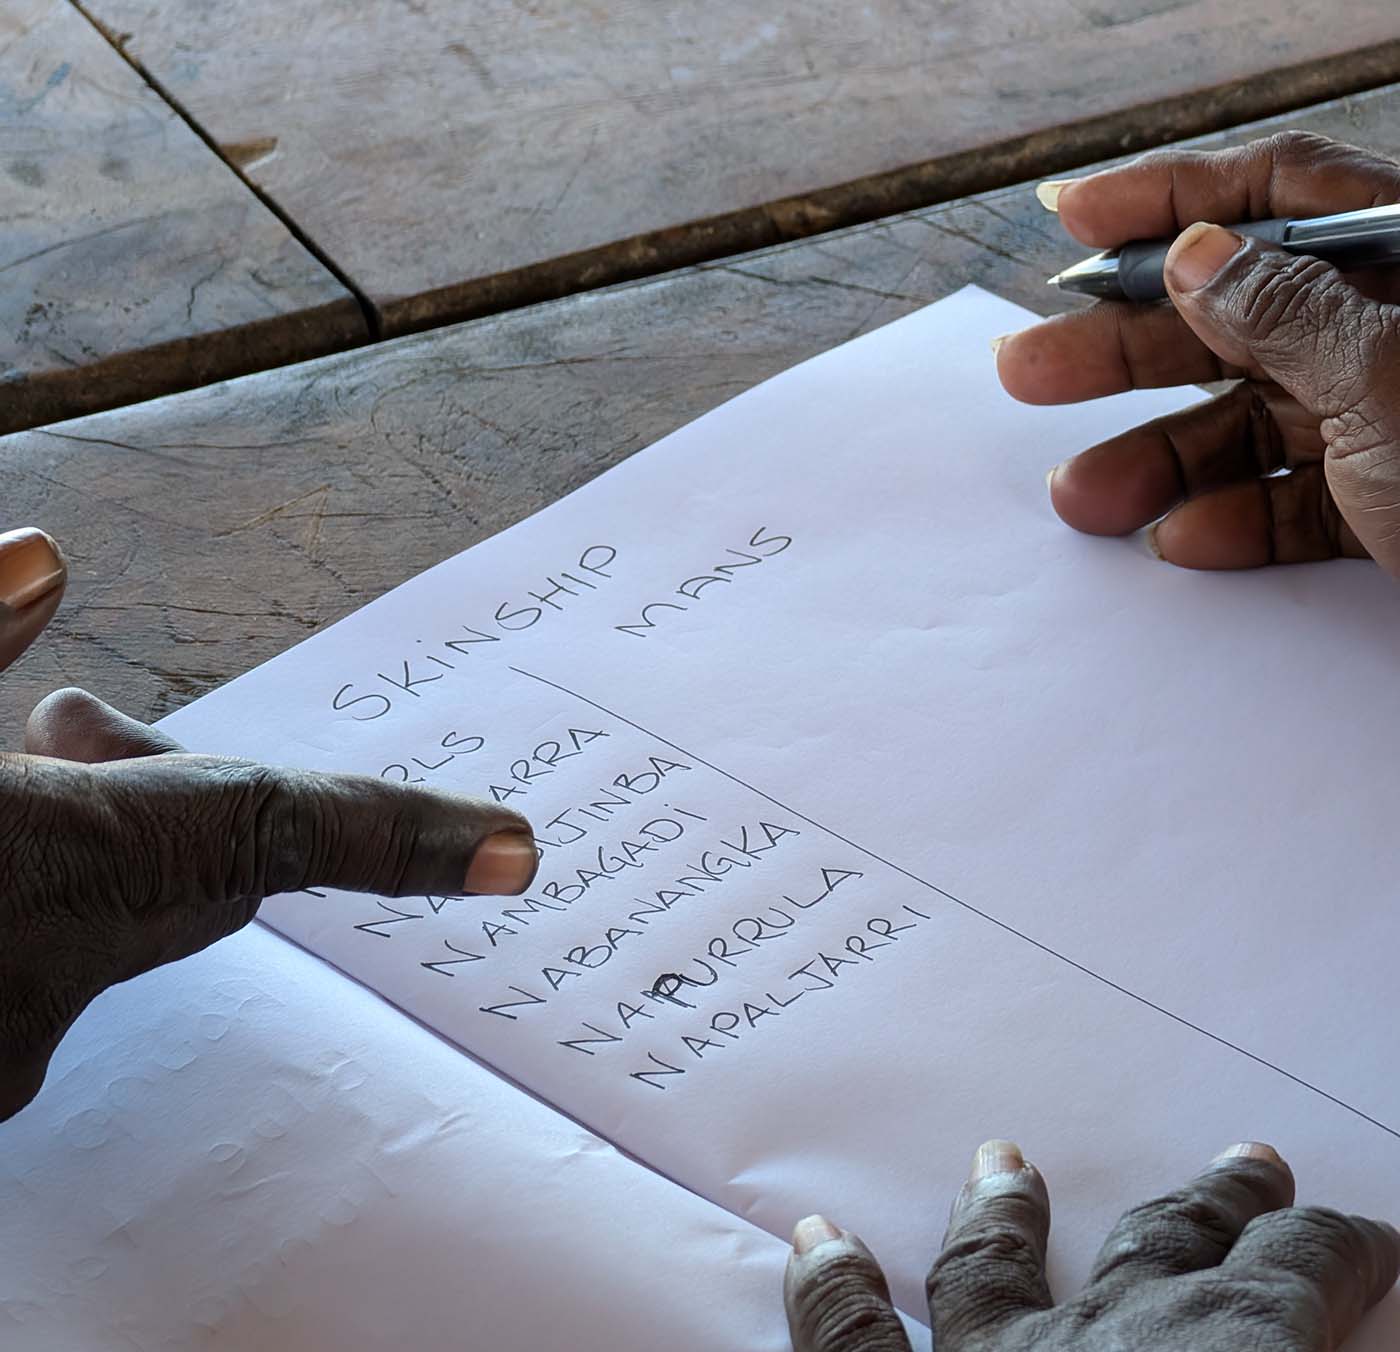 SKiNSHIP
MANS
NAMBAGADi
NABANANGKA
NAPURRULA
NAPALJARRI